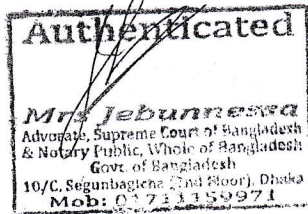 Authenticated
Mrs Jebunnessa
Advocate, Supreme Court of Bangladesh
& Notary Public, Whole of Bangladesh
Govt. of Bangladesh
10/C, Segunbagicha (2nd Floor), Dhaka
Mob: 01711159971